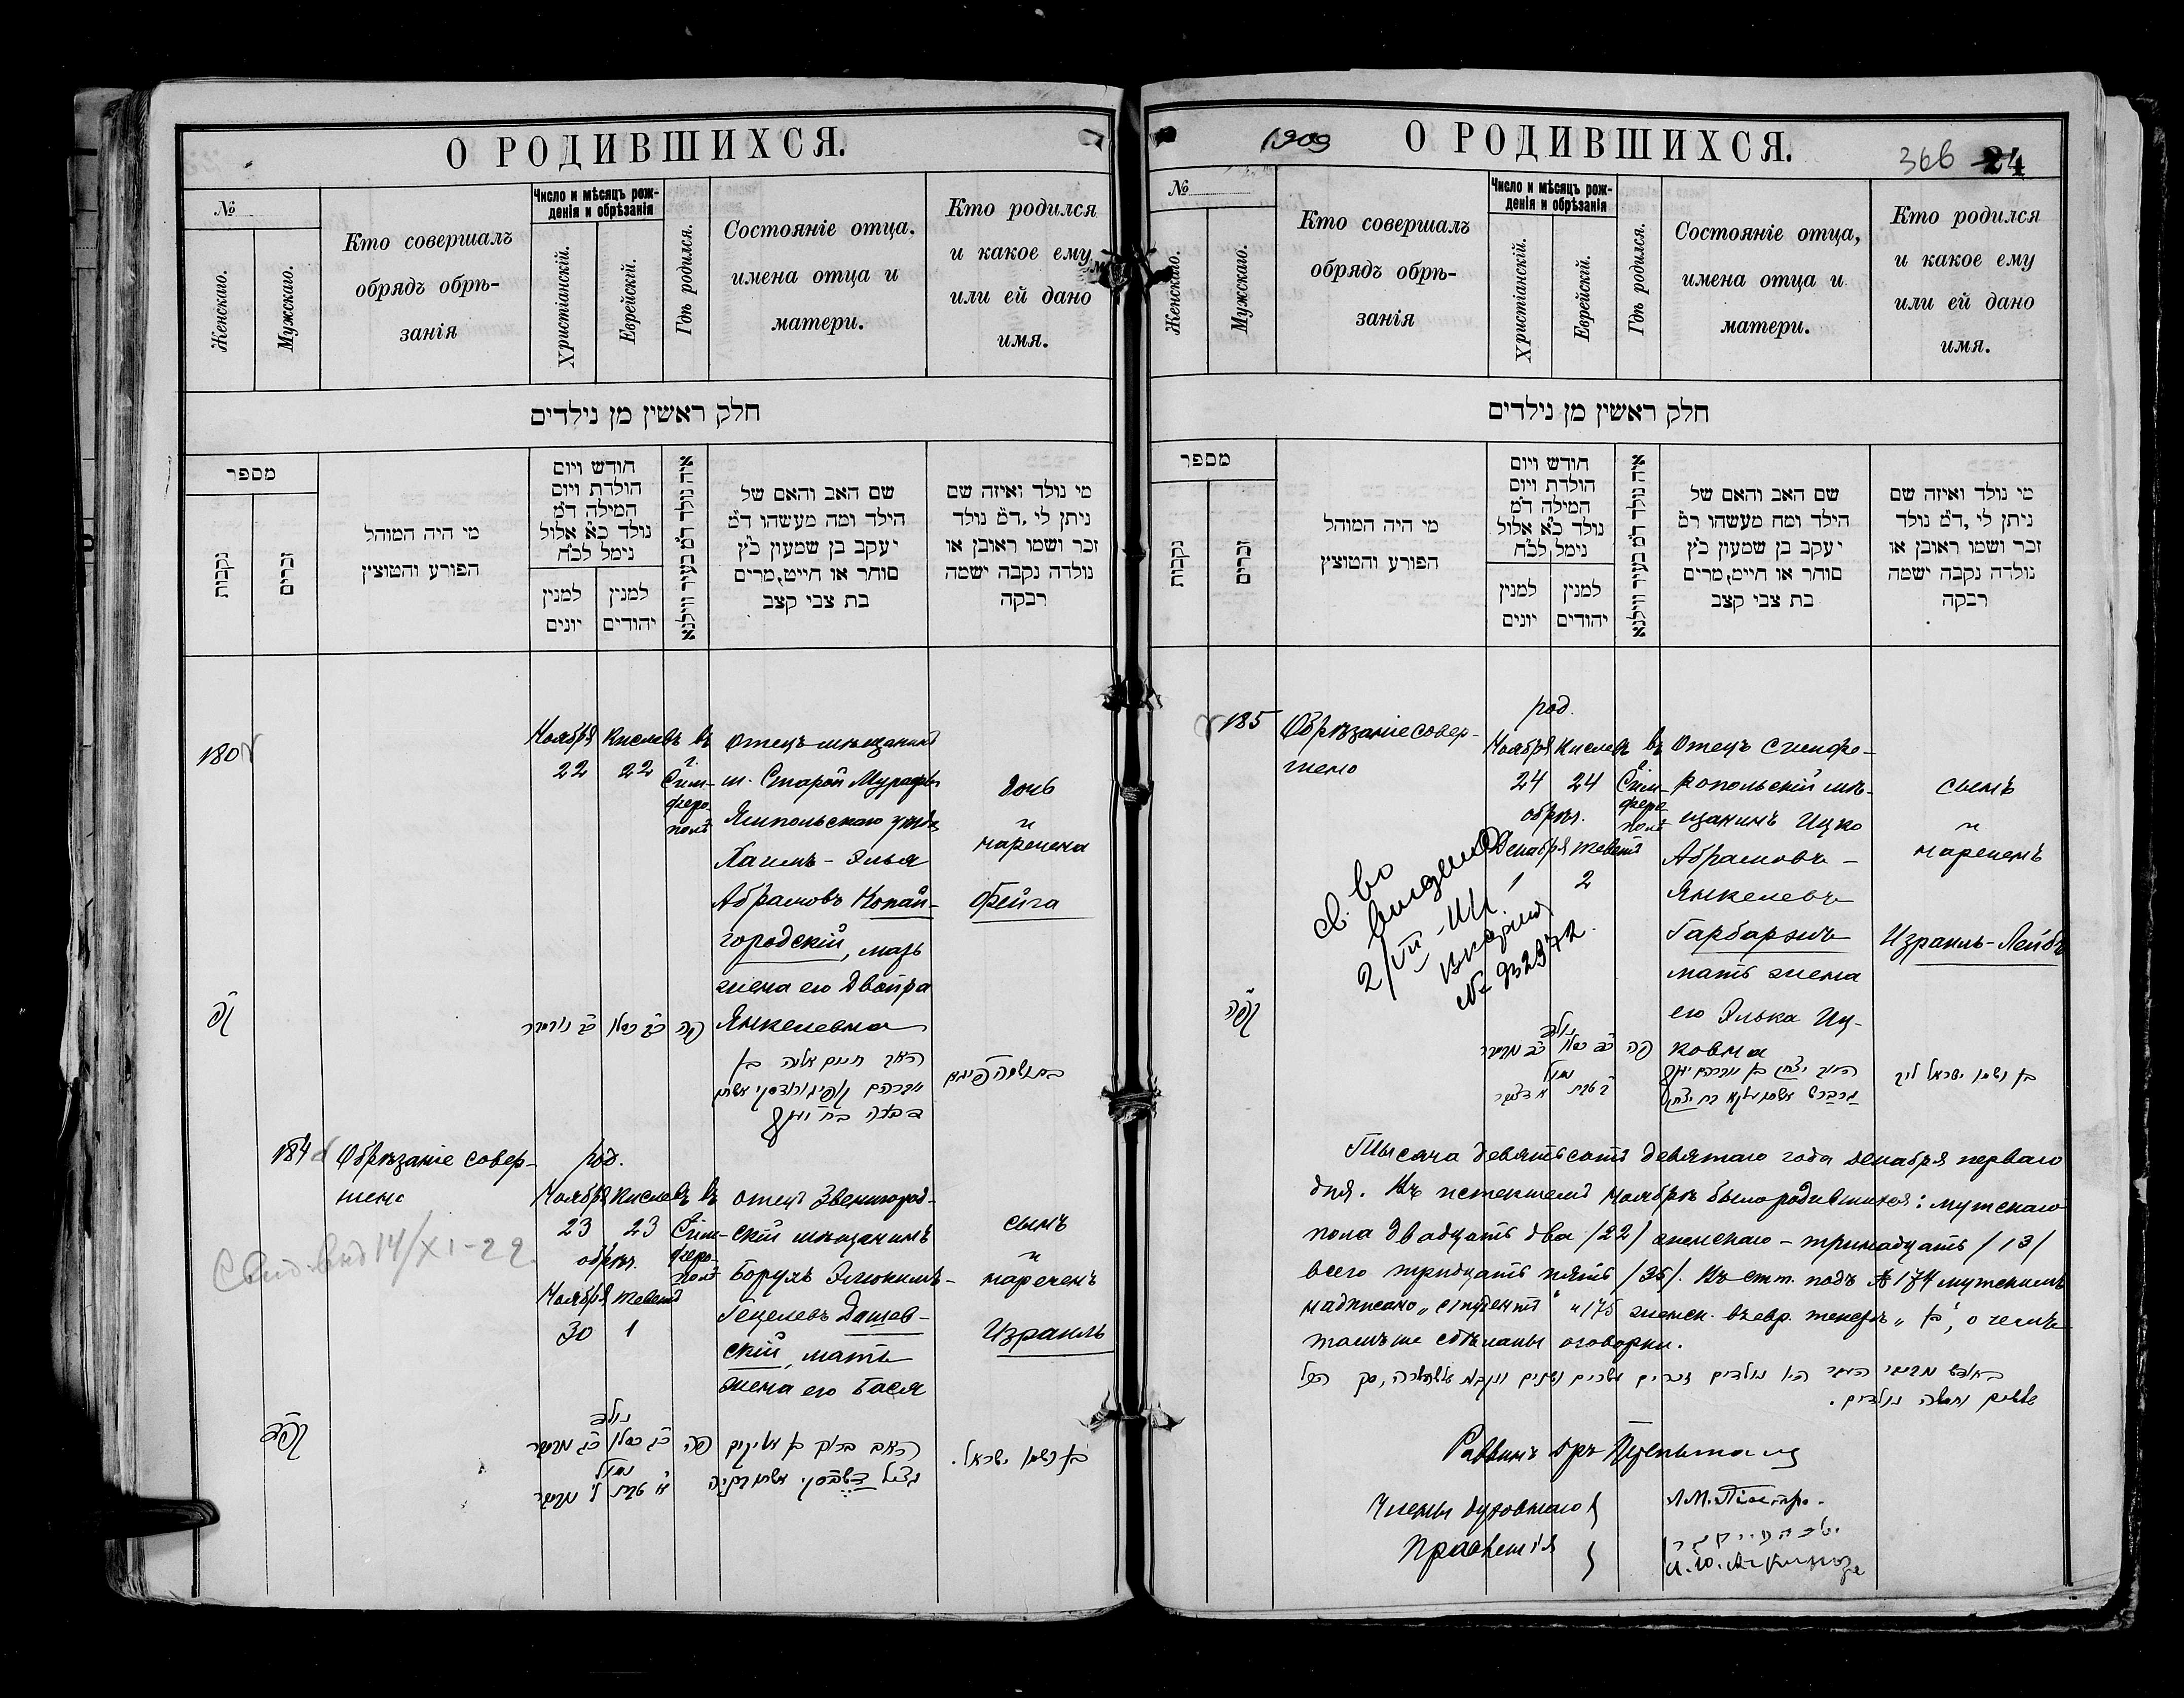 О РОДИВШИХСЯ.
№
Женскаго.
Мужскаго.
Кто совершалъ
обрядъ обрѣ-
занія
Число и мѣсяцъ рож-
денія и обрѣзанія
Христіанскій.
Еврейскій.
Гдѣ родился.
Состояніе отца,
имена отца и
матери.
Кто родился
и какое ему
или ей дано
имя.
חלק ראשין מן נילדים
מספר
נקבות
זכרים
מי היה המוהל
הפורע והמוצץ
חודש ויום
הולדת ויום
המילה ד״מ
נולד כ״א אלול
נימל לכ״ח
למנין
יונים
למנין
יהודים
איה נולד ד״מ בעיר ווילנא
שם האב והאם של
הילד ומה מעשהו ד״מ
יעקב בן שמעון כ״ץ
סוחר או חייט, מרים
בת צבי קצב
מי נולד ואיזה שם
ניתן לו, ד״מ נולד
זכר ושמו ראובן או
נולדה נקבה ישמה
רבקה
180
Ноября
22
Кислевъ
22
въ
г.
Сим-
феро-
полѣ
Отецъ мѣщанинъ
м. Старой Мурафы
Ямпольскаго уѣзда
Хаимъ - Элья
Абрамовъ Копай-
городскій, мать
жена его Двойра
Янкелевна
дочь
и
наречена
Фейга
ק״פ
פה
184
Обрѣзаніе совер-
шено
род.
Ноября
23
обрѣз.
Ноября
30
Кислевъ
23
Теветъ
1
въ
г.
Сим-
феро-
полѣ
отецъ Звенигород-
скій мѣщанинъ
Борухъ Элюкимъ-
Гецелевъ Дашев-
скій, мать
жена его Бася
сынъ
и
нареченъ
Израиль
Свид. выд 14/XI-22
קפ״ד
נולד
פה
נמול
בן ושמו ישראל.
1909
О РОДИВШИХСЯ.
366 24
№
Женскаго.
Мужскаго.
Кто совершалъ
обрядъ обрѣ-
занія
Число и мѣсяцъ рож-
денія и обрѣзанія
Христіанскій.
Еврейскій.
Гдѣ родился.
Состояніе отца,
имена отца и
матери.
Кто родился
и какое ему
или ей дано
имя.
חלק ראשין מן נילדים
מספר
נקבות
זכרים
מי היה המוהל
הפורע והמוצץ
חודש ויום
הולדת ויום
המילה ד״מ
נולד כ״א אלול
נימל לכ״ח
למנין
יונים
למנין
יהודים
איה נולד ד״מ בעיר ווילנא
שם האב והאם של
הילד ומה מעשהו ד״מ
יעקב בן שמעון כ״ץ
סוחר או חייט, מרים
בת צבי קצב
מי נולד ואיזה שם
ניתן לו, ד״מ נולד
זכר ושמו ראובן או
נולדה נקבה ישמה
רבקה
185
Обрѣзаніе совер-
шено
род.
Ноября
24
обрѣз.
Декабря
1
Кислевъ
24
Теветъ
2
въ
г.
Сим-
феро-
полѣ
Отецъ Симфе-
ропольскій мѣ-
щанинъ Ицко
Абрамовъ-
Янкелевъ
Гарбаржъ
мать жена
его Элька Иц-
ковна
сынъ
и
нареченъ
Израиль-Лейбъ
св. во
выдано
2/VII
№ 932972.
קפ״ה
נולד
פה
נמול
בן ושמו ישראל ליב
Тысяча девятьсотъ девятаго года декабря перваго
дня. Въ истекшемъ ноябрѣ было родившихся: мужскаго
пола двадцать два /22/ женскаго - тринадцать /13/
всего тридцать пять /35/. Въ ст. подъ № 174 мужскимъ
надписано „студентъ" и 175 женск. въ евр. текстѣ „בן", о чемъ
тамъ же сдѣланы оговорки.
שלשים וחמשה נולדים.
Раввинъ
Члены Духовнаго
Правленія